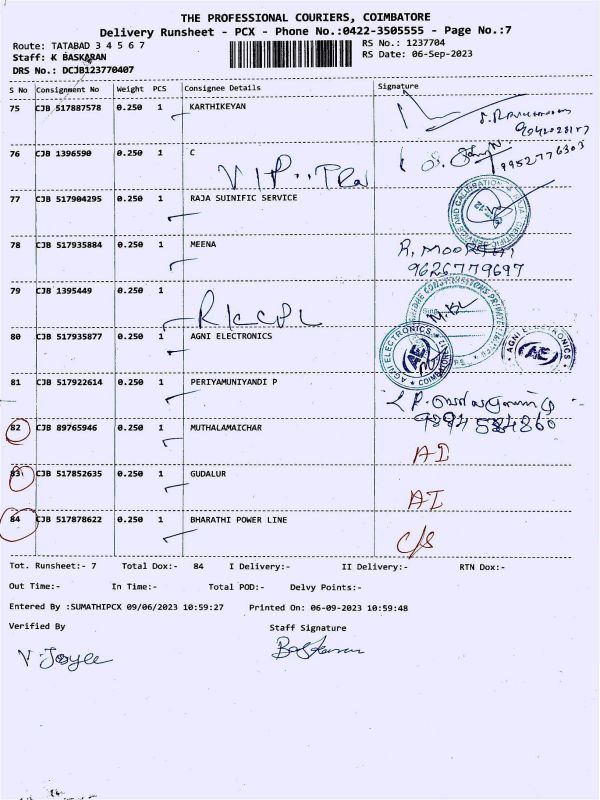 THE PROFESSIONAL COURIERS, COIMBATORE
Delivery Runsheet - PCX - Phone No.:0422-3505555 - Page No.:7
Route: TATABAD 3 4 5 6 7
RS No.: 1237704
Staff: K BASKARAN
RS Date: 06-Sep-2023
DRS No.: DCJB123770407
S No Consignment No Weight PCS Consignee Details Signature
75 CJB 517887578 0.250 1 KARTHIKEYAN
9042028157
76 CJB 1396590 0.250 1 C
9952776303
VIP
77 CJB 517904295 0.250 1 RAJA SUINIFIC SERVICE
78 CJB 517935884 0.250 1 MEENA
R. MOORTHI
9626779697
79 CJB 1395449 0.250 1
RKCPL
80 CJB 517935877 0.250 1 AGNI ELECTRONICS
AGNI ELECTRONICS
COIMBATORE
AE
AGNI ELECTRONICS
AE
81 CJB 517922614 0.250 1 PERIYAMUNIYANDI P
9894584860
82 CJB 89765946 0.250 1 MUTHALAMAICHAR
AD
83 CJB 517852635 0.250 1 GUDALUR
AI
84 CJB 517878622 0.250 1 BHARATHI POWER LINE
C/S
Tot. Runsheet:- 7 Total Dox:- 84 I Delivery:- II Delivery:- RTN Dox:-
Out Time:- In Time:- Total POD:- Delvy Points:-
Entered By :SUMATHIPCX 09/06/2023 10:59:27 Printed On: 06-09-2023 10:59:48
Verified By Staff Signature
V. Joyce
Baskaran